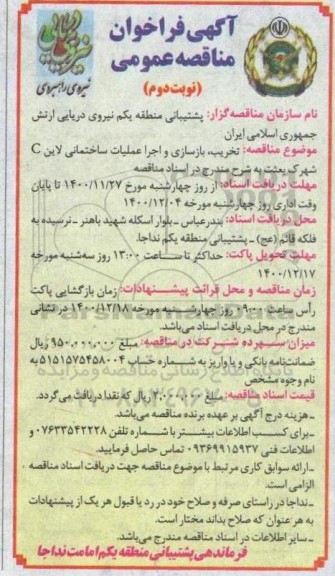 آگهی فراخوان
مناقصه عمومی
(نوبت دوم)
نیروی راهبردی
نام سازمان مناقصه‌گزار: پشتیبانی منطقه یکم نیروی دریایی ارتش
جمهوری اسلامی ایران
موضوع مناقصه: تخریب، بازسازی و اجرا عملیات ساختمانی لاین C
شهرک بعثت به شرح مندرج در اسناد مناقصه
مهلت دریافت اسناد: از روز چهارشنبه مورخ ۱۴۰۰/۱۱/۲۷ تا پایان
وقت اداری روز چهارشنبه مورخه ۱۴۰۰/۱۲/۰۴
محل دریافت اسناد: بندرعباس ـ بلوار اسکله شهید باهنر ـ نرسیده به
فلکه قائم (عج) ـ پشتیبانی منطقه یکم نداجا.
مهلت تحویل پاکت: حداکثر تا ساعت ۱۳۰۰ روز سه‌شنبه مورخه
۱۴۰۰/۱۲/۱۷
زمان مناقصه و محل قرائت پیشنهادات: زمان بازگشایی پاکت
رأس ساعت ۰۹۰۰ روز چهارشنبه مورخه ۱۴۰۰/۱۲/۱۸ در نشانی
مندرج در محل دریافت اسناد می‌باشد.
میزان سپرده شرکت در مناقصه: مبلغ ۹۵۰,۰۰۰,۰۰۰ ریال
ضمانت‌نامه بانکی و یا واریز به شماره حساب ۵۱۵۱۵۷۵۴۵۸۰۰۴ به
نام وجوه مشخص
قیمت اسناد مناقصه: مبلغ ۲,۰۰۰,۰۰۰ ریال که نقدا دریافت می‌گردد.
ـ هزینه درج آگهی بر عهده برنده مناقصه می‌باشد.
ـ برای کسب اطلاعات بیشتر با شماره تلفن ۰۷۶۳۳۵۴۲۲۲۸ و
اطلاعات فنی ۰۹۳۶۹۹۱۵۹۳۷ تماس حاصل فرمایید.
ـ ارائه سوابق کاری مرتبط با موضوع مناقصه جهت دریافت اسناد مناقصه
الزامی است.
ـ نداجا در راستای صرفه و صلاح خود در رد یا قبول هر یک از پیشنهادات
به هر عنوان که صلاح بداند مختار است.
ـ سایر اطلاعات در اسناد مناقصه مندرج می‌باشد.
فرماندهی پشتیبانی منطقه یکم امامت نداجا